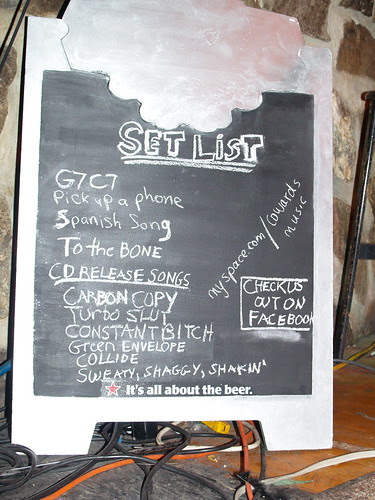 SET LiST
G7C7
Pick up a phone
Spanish Song
To the BONE
CD RELEASE SONGS
CARBON COPY
Turbo SLUT
CONSTANT BITCH
Green ENVELOPE
COLLIDE
SWEATY, SHAGGY, SHAKIN'
myspace.com/cowards
music
CHECK US
OUT ON
FACEBOOK
It's all about the beer.